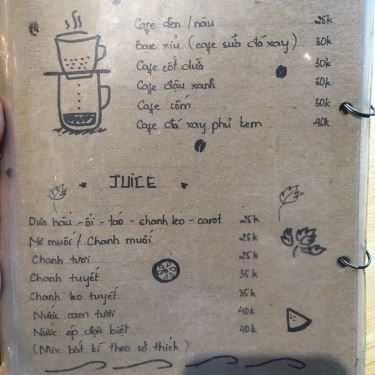 Cafe đen / nâu 25k
Bạc xỉu (cafe sữa đá xay) 30k
Cafe cốt dừa 30k
Cafe đậu xanh 30k
Cafe cốm 30k
Cafe đá xay phủ kem 40k
JUICE
Dưa hấu - ổi - táo - chanh leo - carot 25k
Mơ muối / Chanh muối 25k
Chanh tươi 25k
Chanh tuyết 35k
Chanh leo tuyết 35k
Nước cam tươi 40k
Nước ép đặc biệt 40k
(Mix bất kì theo sở thích)